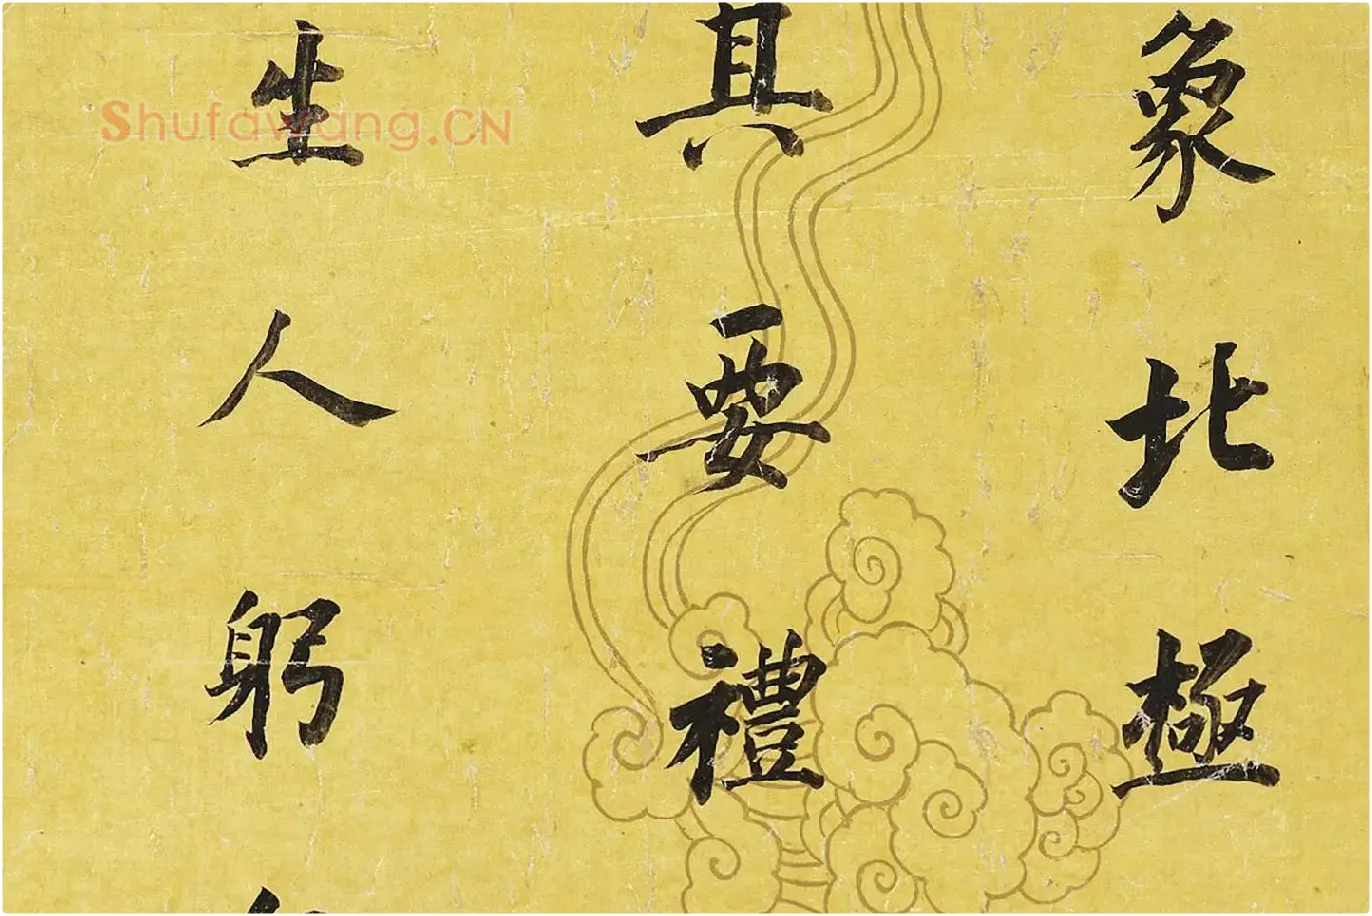 象北極
其要禮
生人躬
Shufawang.CN